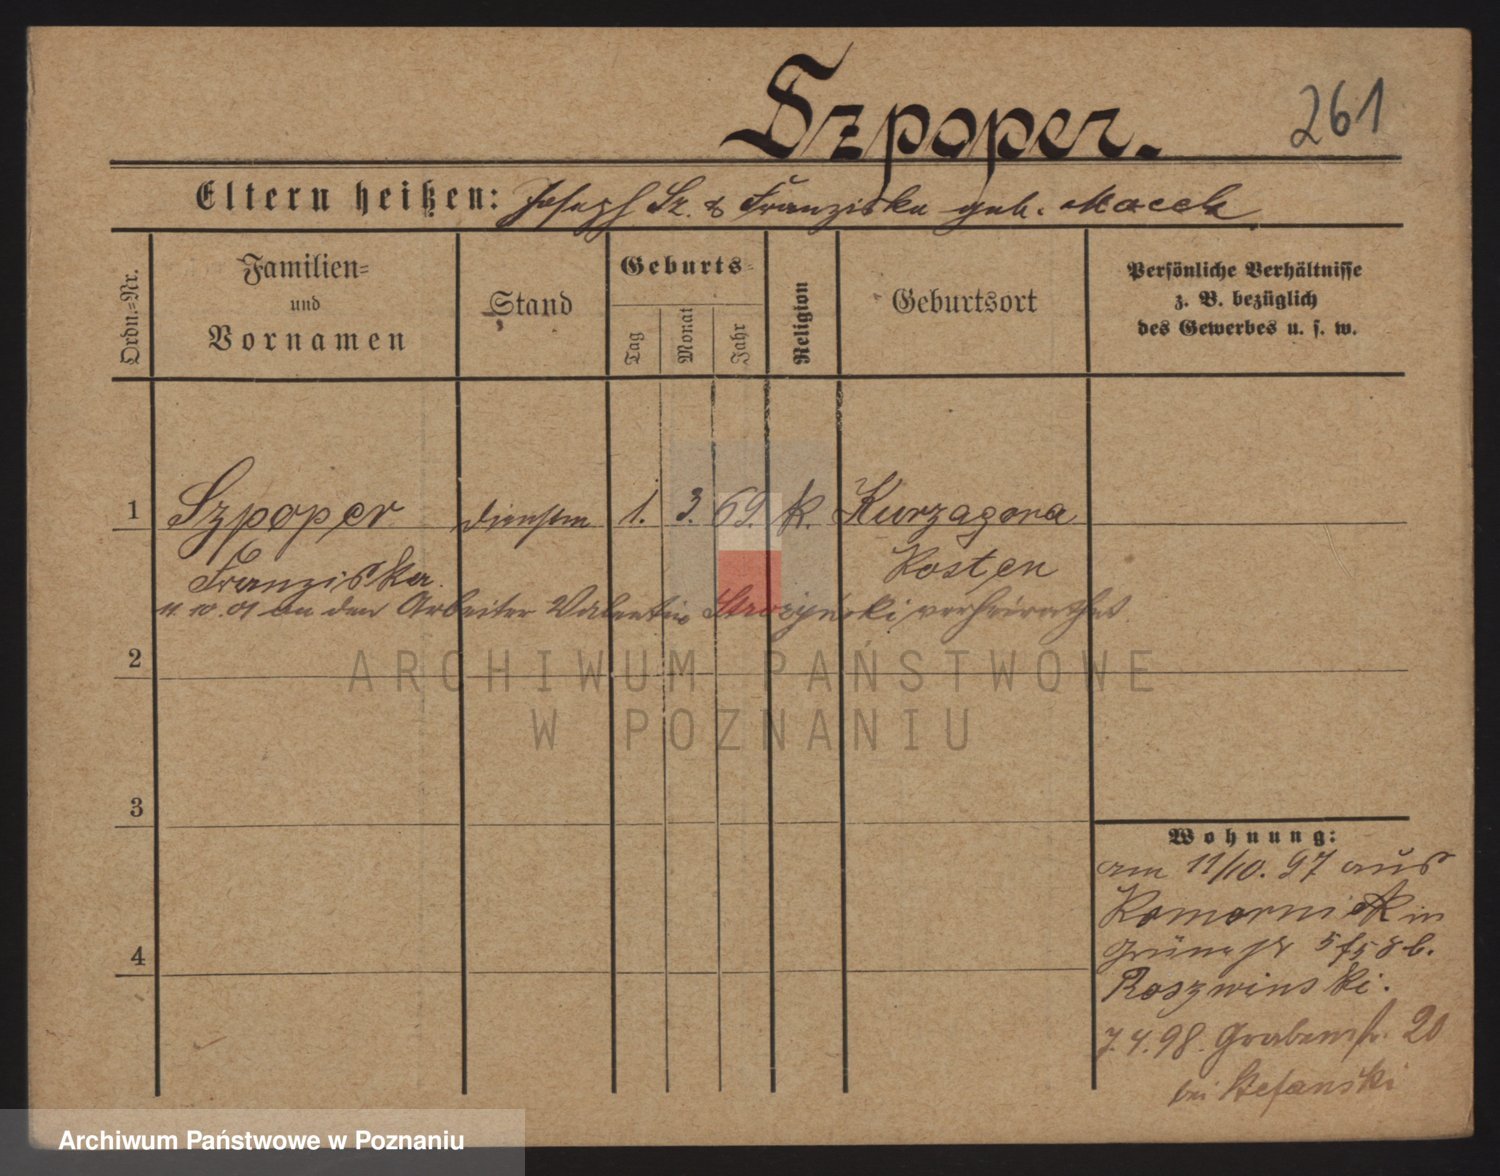 Szpoper.
261
Eltern heißen: Joseph Sz. & Franziska geb. Macek
Ordn.=Nr.
Familien=
und
Vornamen
Stand
Geburts=
Tag
Monat
Jahr
Religion
Geburtsort
Persönliche Verhältnisse
z. B. bezüglich
des Gewerbes u. s. w.
1 Szpoper 1. 3. 69. k. Kurzagora
Franziska Kosten
an den Arbeiter Valentin verheirathet.
2
ARCHIWUM PAŃSTWOWE
W POZNANIU
3
4
Wohnung:
am 11/10. 97 aus
Komornik in
Roszwinski.
7.4.98. Grabenstr. 20
bei Stefanski
Archiwum Państwowe w Poznaniu